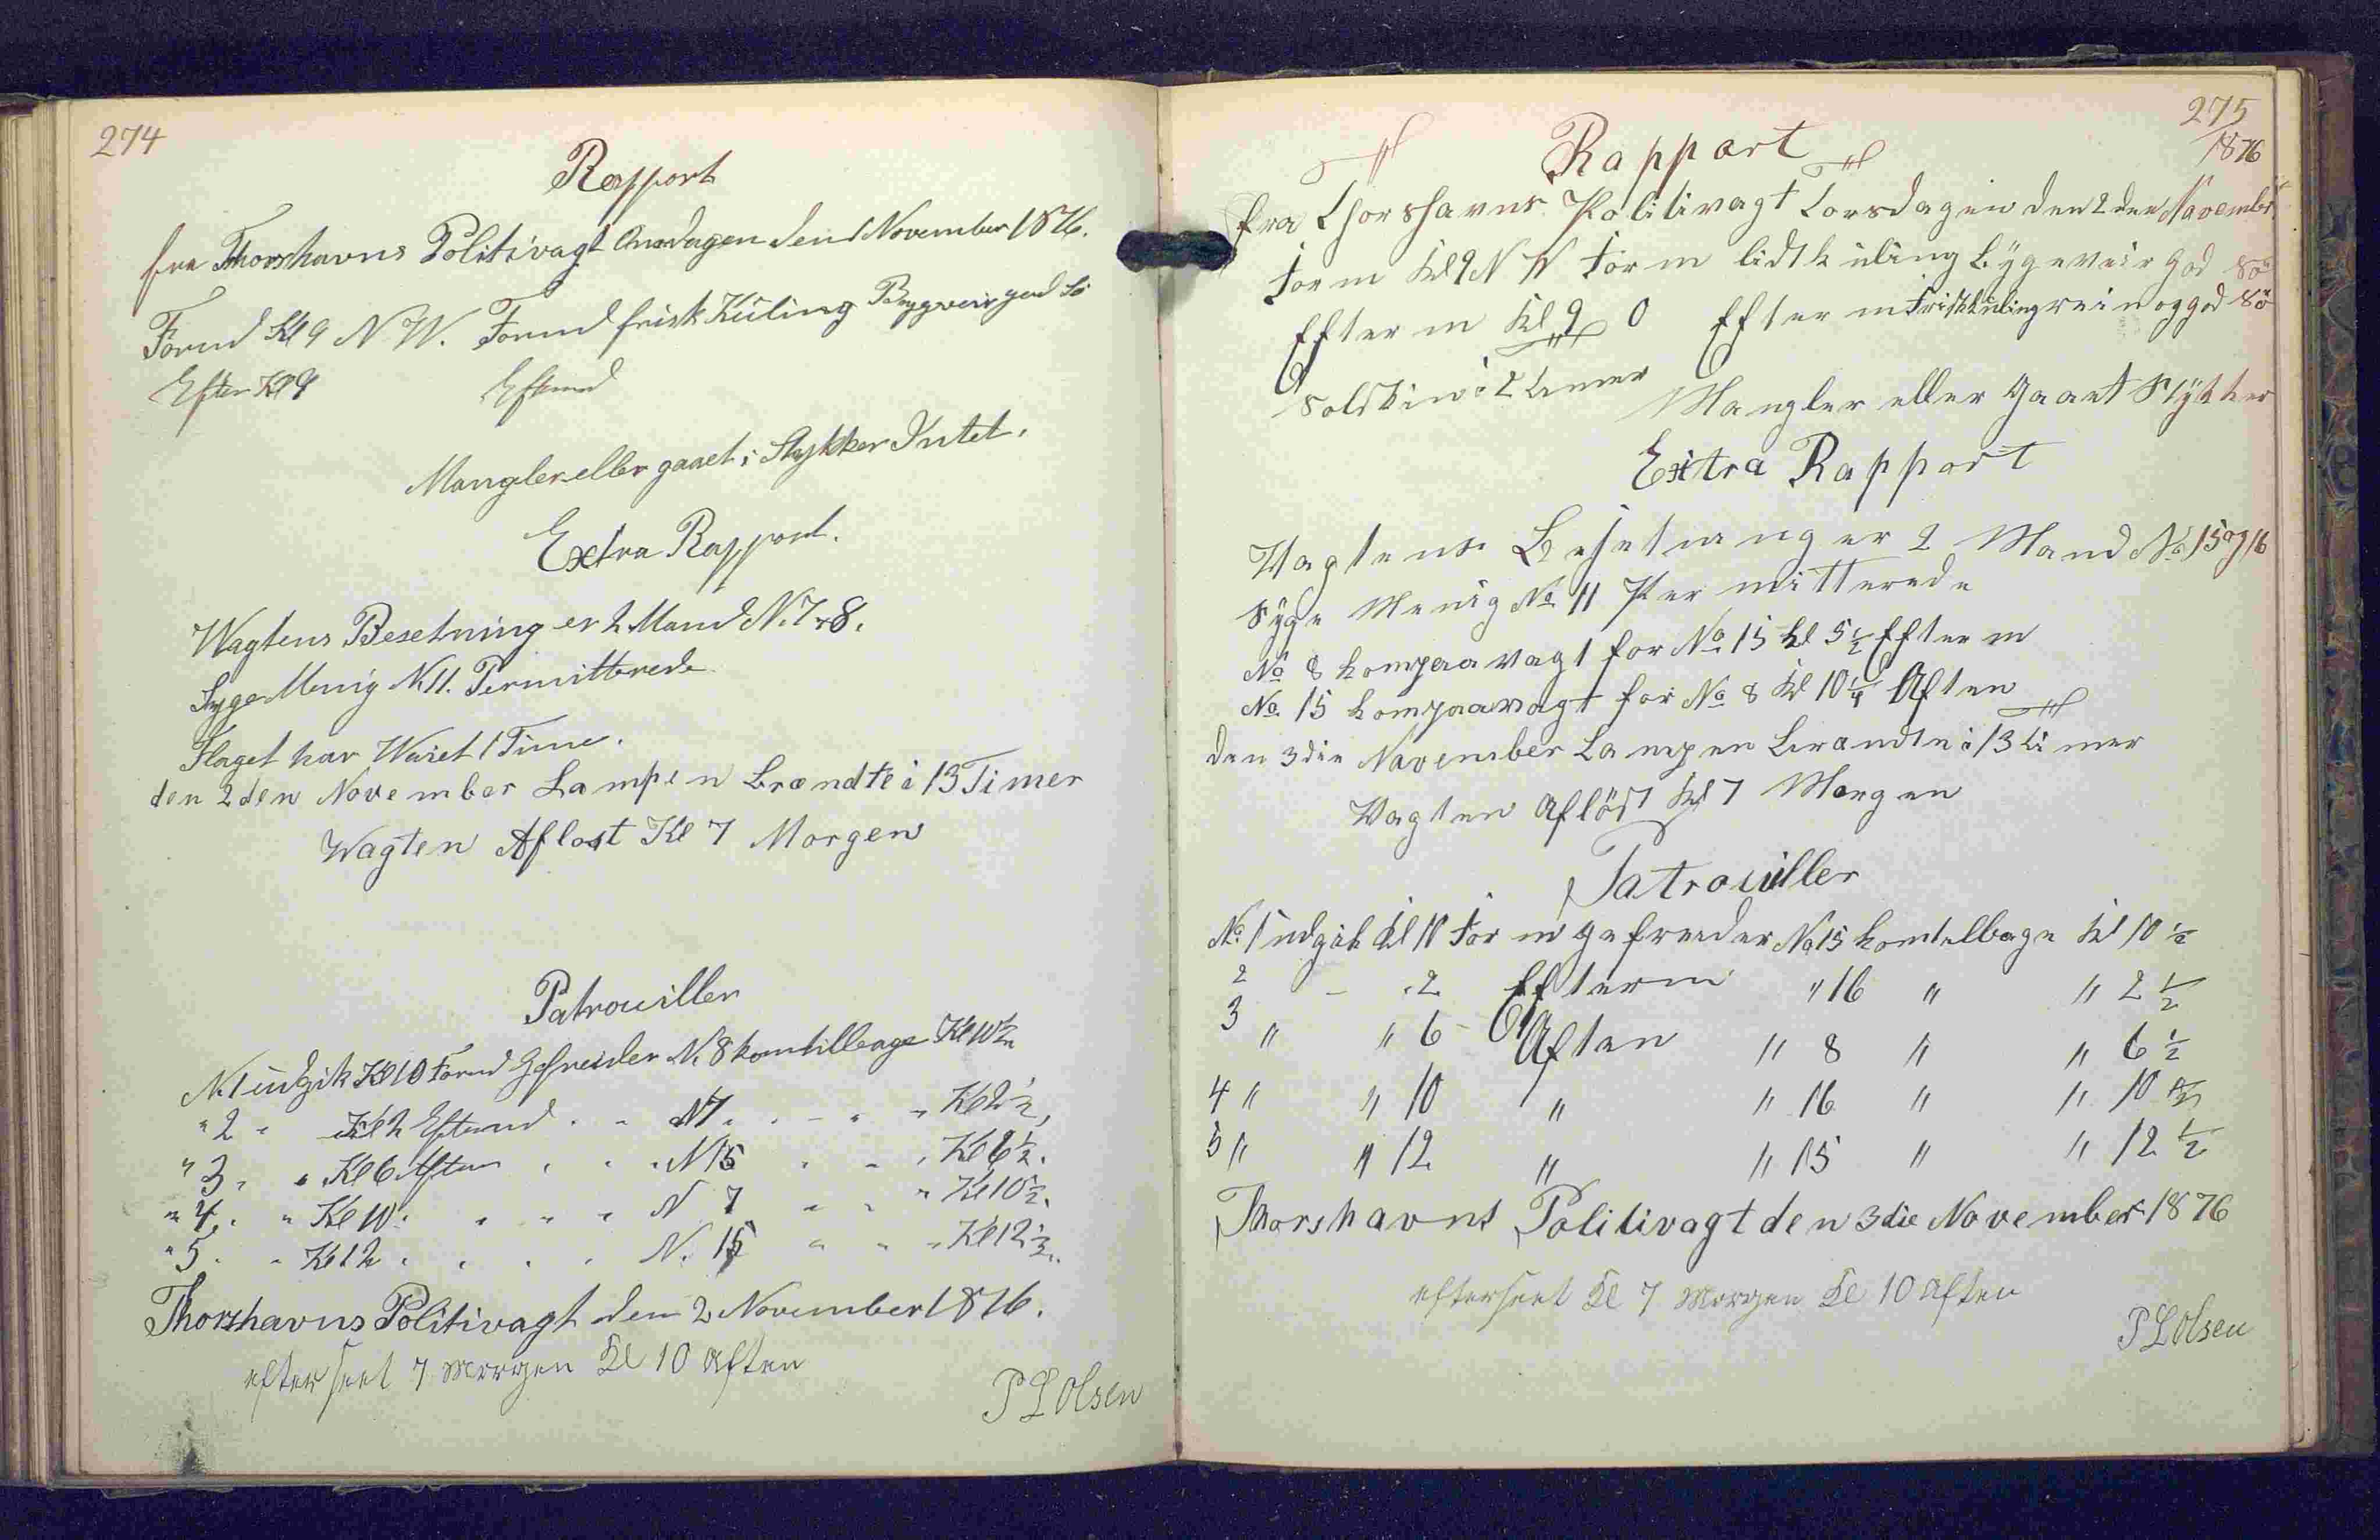 274
Rapport
fra Thorshavns Politivagt Onsdagen den 1 November 1876.
Formd Kl 9 N W. Formd frisk Kuling Bygveir god Sö
Efter Kl 9 Eftmd
Mangler eller gaaet i Stykker Intet.
Extra Rapport.
Wagtens Besetning er 2 Mand N. 7 & 8.
Syge Menig N 11. Permitterede
Flaget har Waiet 1 Time.
den 2den November Lampen Brændte i 13 Timer
Wagten Aflost Kl 7 Morgen
Patrouiller
N. 1 udgik Kl 10 Formd Gefreider N. 8 kom tilbage Kl 10 1/2
" 2 " Kl 2 Eftermd " " N 7 " " " Kl 2 1/2,
" 3 " " Kl 6 Aften " " " N 15 " " " Kl 6 1/2.
" 4. " " Kl 10. " " " " N 7 " " " Kl 10 1/2.
" 5. " " Kl 12 " " " " N. 15 " " " Kl 12 1/2.
Thorshavns Politivagt den 2 November 1876.
efterseet 7 Morgen Kl 10 Aften
P L Olsen
275
1876
Rapport
fra Thorshavns Politivagt Torsdagen den 2den November
Form Kl 9 N W Form lidt kuling bygeveir god Sö
Efterm Kl 9 0 Efterm Frisk kuling rein og god Sö
2 timer
Mangler eller Gaaet Stykker
Extra Rapport
Vagtens Besetning er 2 Mand No 15 og 16
Syge Menig No 11 Permitterede
No 8 kom paa vagt for No 15 kl 5 1/2 Efterm
No 15 kom paa vagt for No 8 Kl 10 1/4 Aften
den 3die November Lampen brandte i 13 timer
Vagten Aflöst Kl 7 Morgen
Patrouiller
No 1 udgik Kl 10 Form Gefreeder No 15 kom telbage Kl 10 1/2
2 - " 2 Efterm " 16 " " 2 1/2
3 " " 6 - Aften " 8 " " 6 1/2
4 " " 10 " " 16 " " 10 1/2
5 " " 12 " " 15 " " 12 1/2
Thorshavns Politivagt den 3die November 1876
efterseet Kl 7 Morgen Kl 10 Aften
P L Olsen